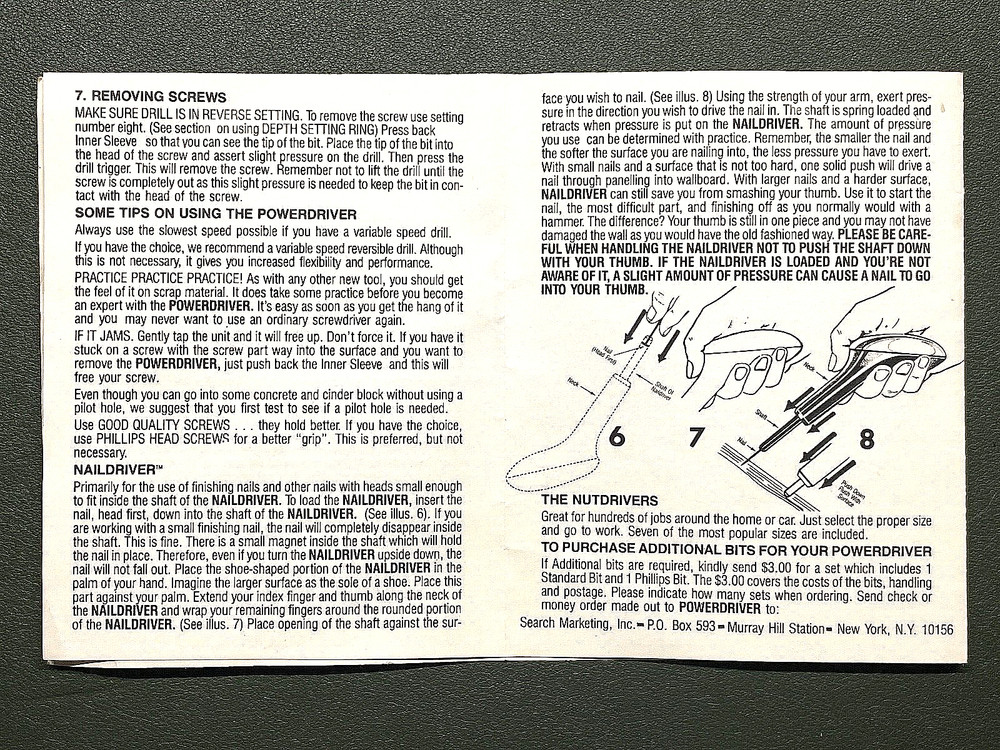 7. REMOVING SCREWS
MAKE SURE DRILL IS IN REVERSE SETTING. To remove the screw use setting
number eight. (See section on using DEPTH SETTING RING) Press back
Inner Sleeve so that you can see the tip of the bit. Place the tip of the bit into
the head of the screw and assert slight pressure on the drill. Then press the
drill trigger. This will remove the screw. Remember not to lift the drill until the
screw is completely out as this slight pressure is needed to keep the bit in con-
tact with the head of the screw.
SOME TIPS ON USING THE POWERDRIVER
Always use the slowest speed possible if you have a variable speed drill.
If you have the choice, we recommend a variable speed reversible drill. Although
this is not necessary, it gives you increased flexibility and performance.
PRACTICE PRACTICE PRACTICE! As with any other new tool, you should get
the feel of it on scrap material. It does take some practice before you become
an expert with the POWERDRIVER. It's easy as soon as you get the hang of it
and you may never want to use an ordinary screwdriver again.
IF IT JAMS. Gently tap the unit and it will free up. Don't force it. If you have it
stuck on a screw with the screw part way into the surface and you want to
remove the POWERDRIVER, just push back the Inner Sleeve and this will
free your screw.
Even though you can go into some concrete and cinder block without using a
pilot hole, we suggest that you first test to see if a pilot hole is needed.
Use GOOD QUALITY SCREWS . . . they hold better. If you have the choice,
use PHILLIPS HEAD SCREWS for a better "grip". This is preferred, but not
necessary.
NAILDRIVER™
Primarily for the use of finishing nails and other nails with heads small enough
to fit inside the shaft of the NAILDRIVER. To load the NAILDRIVER, insert the
nail, head first, down into the shaft of the NAILDRIVER. (See illus. 6). If you
are working with a small finishing nail, the nail will completely disappear inside
the shaft. This is fine. There is a small magnet inside the shaft which will hold
the nail in place. Therefore, even if you turn the NAILDRIVER upside down, the
nail will not fall out. Place the shoe-shaped portion of the NAILDRIVER in the
palm of your hand. Imagine the larger surface as the sole of a shoe. Place this
part against your palm. Extend your index finger and thumb along the neck of
the NAILDRIVER and wrap your remaining fingers around the rounded portion
of the NAILDRIVER. (See illus. 7) Place opening of the shaft against the sur-
face you wish to nail. (See illus. 8) Using the strength of your arm, exert pres-
sure in the direction you wish to drive the nail in. The shaft is spring loaded and
retracts when pressure is put on the NAILDRIVER. The amount of pressure
you use can be determined with practice. Remember, the smaller the nail and
the softer the surface you are nailing into, the less pressure you have to exert.
With small nails and a surface that is not too hard, one solid push will drive a
nail through panelling into wallboard. With larger nails and a harder surface,
NAILDRIVER can still save you from smashing your thumb. Use it to start the
nail, the most difficult part, and finishing off as you normally would with a
hammer. The difference? Your thumb is still in one piece and you may not have
damaged the wall as you would have the old fashioned way. PLEASE BE CARE-
FUL WHEN HANDLING THE NAILDRIVER NOT TO PUSH THE SHAFT DOWN
WITH YOUR THUMB. IF THE NAILDRIVER IS LOADED AND YOU'RE NOT
AWARE OF IT, A SLIGHT AMOUNT OF PRESSURE CAN CAUSE A NAIL TO GO
INTO YOUR THUMB.
Nail
(Head First)
Neck
Shaft Of
Naildriver
6
7
Neck
Shaft
Nail
8
Push Down
Flush With
Surface
THE NUTDRIVERS
Great for hundreds of jobs around the home or car. Just select the proper size
and go to work. Seven of the most popular sizes are included.
TO PURCHASE ADDITIONAL BITS FOR YOUR POWERDRIVER
If Additional bits are required, kindly send $3.00 for a set which includes 1
Standard Bit and 1 Phillips Bit. The $3.00 covers the costs of the bits, handling
and postage. Please indicate how many sets when ordering. Send check or
money order made out to POWERDRIVER to:
Search Marketing, Inc.-P.O. Box 593-Murray Hill Station- New York, N.Y. 10156